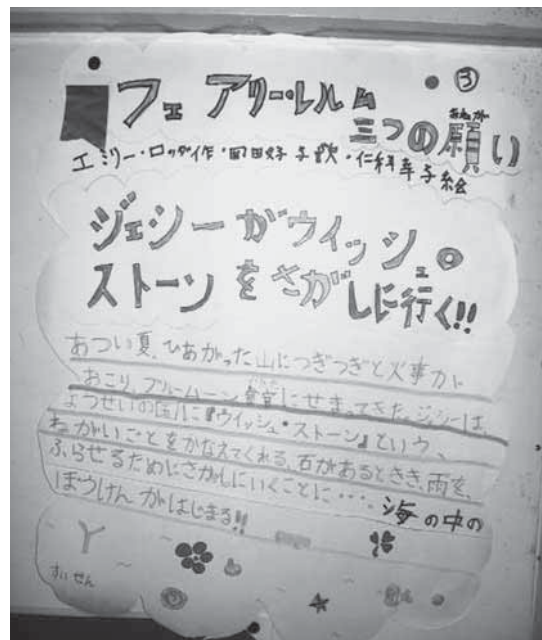 ③
フェアリー・レルム
三つの願い
ねが
エミリー・ロッダ作・岡田好子訳・仁科幸子絵
ジェシーがウイッシュ・
ストーンをさがしに行く!!
あつい夏、ひあがった山につぎつぎと火事が
おこり、ブルームーン荘にせまってきた。ジェシーは、
ようせいの国に『ウイッシュ・ストーン』という、
ねがいごとをかなえてくれる、石があるときき、雨を、
ふらせるためにさがしにいくことに・・・。海の中の
ぼうけんがはじまる!!
すいせん